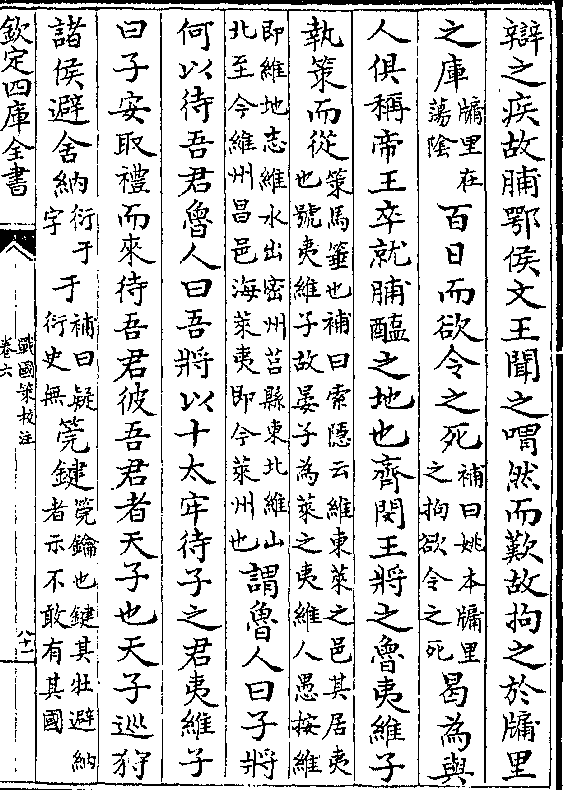 辯之疾故脯鄂侯文王聞之喟然而歎故拘之於牖里
之庫牖里在蕩隂百日而欲令之死補曰姚本牖里之拘欲令之死曷為與
人俱稱帝王卒就脯醢之地也齊閔王將之魯夷維子
執策而從策馬箠也補曰索隱云維東萊之邑其居夷也號夷維子故晏子為萊之夷維人愚按維
即維地志維水出密州莒縣東北維山北至今維州昌邑海萊夷即今萊州也謂魯人曰子將
何以待吾君魯人曰吾將以十太牢待子之君夷維子
曰子安取禮而來待吾君彼吾君者天子也天子巡狩
諸侯避舍納衍于字于補曰疑衍史無筦鍵筦鑰也鍵其牡避納者示不敢有其國
欽定四庫全書
戰國策校注
卷六
八十一